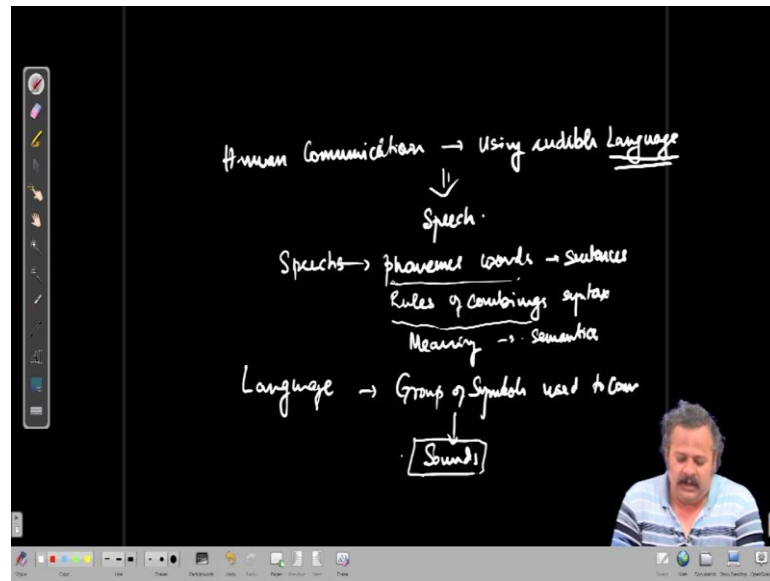 Human Communication → Using audible Language
⇓
Speech.
Speech → phonemes words → sentences
Rules of combinings syntax
Meaning → semantics
Language → Group of Symbols used to Com
↓
Sounds